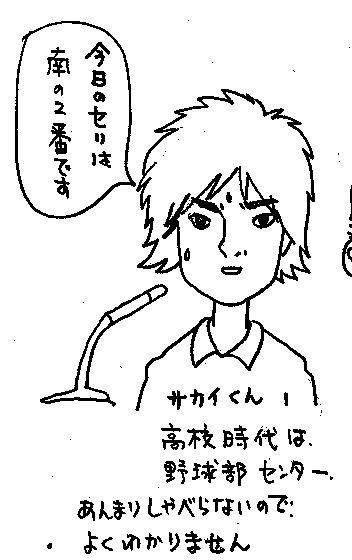 今日のセリは
南の2番です
サカイくん
高校時代は、
野球部センター、
あんまりしゃべらないので、
よくわかりません